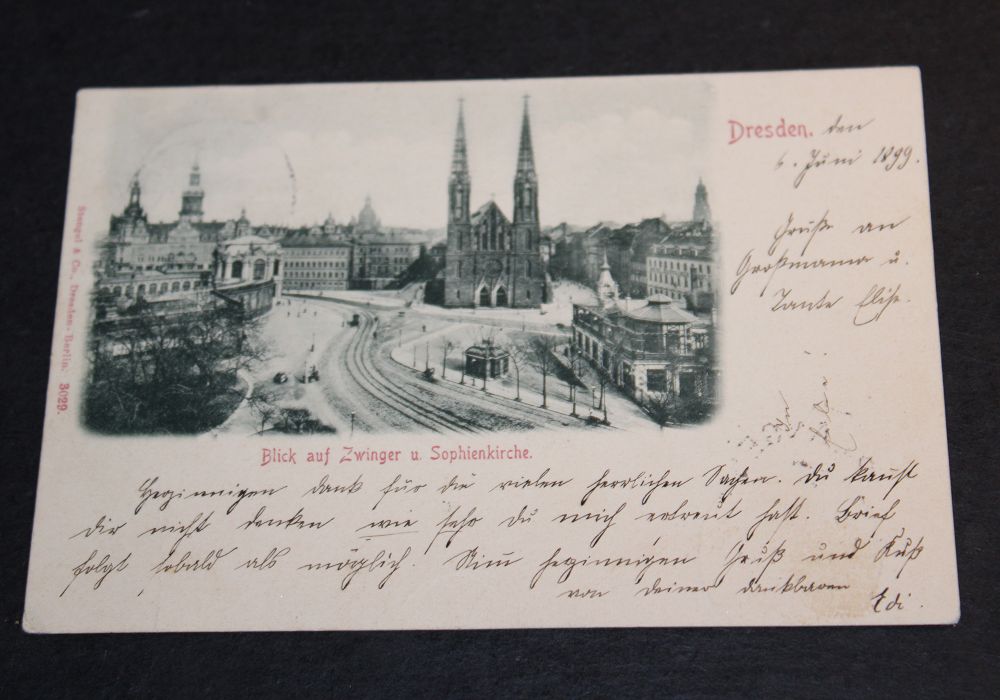 Dresden, den
6. Juni 1899.
Grüße an
Großmama u.
Tante Elise.
Stengel & Co., Dresden-Berlin. 3029.
Blick auf Zwinger u. Sophienkirche.
Herzinnigen dank für die vielen herrlichen Sachen. Du kaust
dir nicht denken wie sehr du mich erfreut hast. Brief
folgt sobald als möglich. Nim herzinnigen Gruß und Kuß
von deiner dankbaren
Edi.